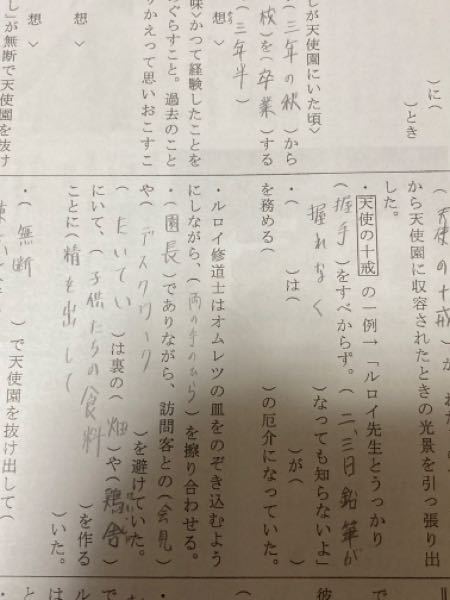 )に(
)とき
しが天使園にいた頃〉
(三年の秋)から
校)を(卒業)する
(三年半)
想〉
味〉かつて経験したことを
ぐらすこと。過去のこと
りかえって思いおこすこ
想〉
想〉
し」が無断で天使園を抜け
(天使の十戒)が
から天使園に収容されたときの光景を引っ張り出
した。
・天使の十戒の一例→「ルロイ先生とうっかり
(握手)をすべからず。(二、三日鉛筆が
握れなく)なっても知らないよ」
・( )は( )が(
を務める( )の厄介になっていた。
・ルロイ修道士はオムレツの皿をのぞき込むよう
にしながら、(両の手のひら)を擦り合わせる。
・(園長)でありながら、訪問客との(会見)
や(デスクワーク)を避けていた。
(たいてい)は裏の(畑)や(鶏舎)
にいて、(子供たちの食料)を作る
ことに(精を出して)いた。
・(無断)で天使園を抜け出して(
で
彼